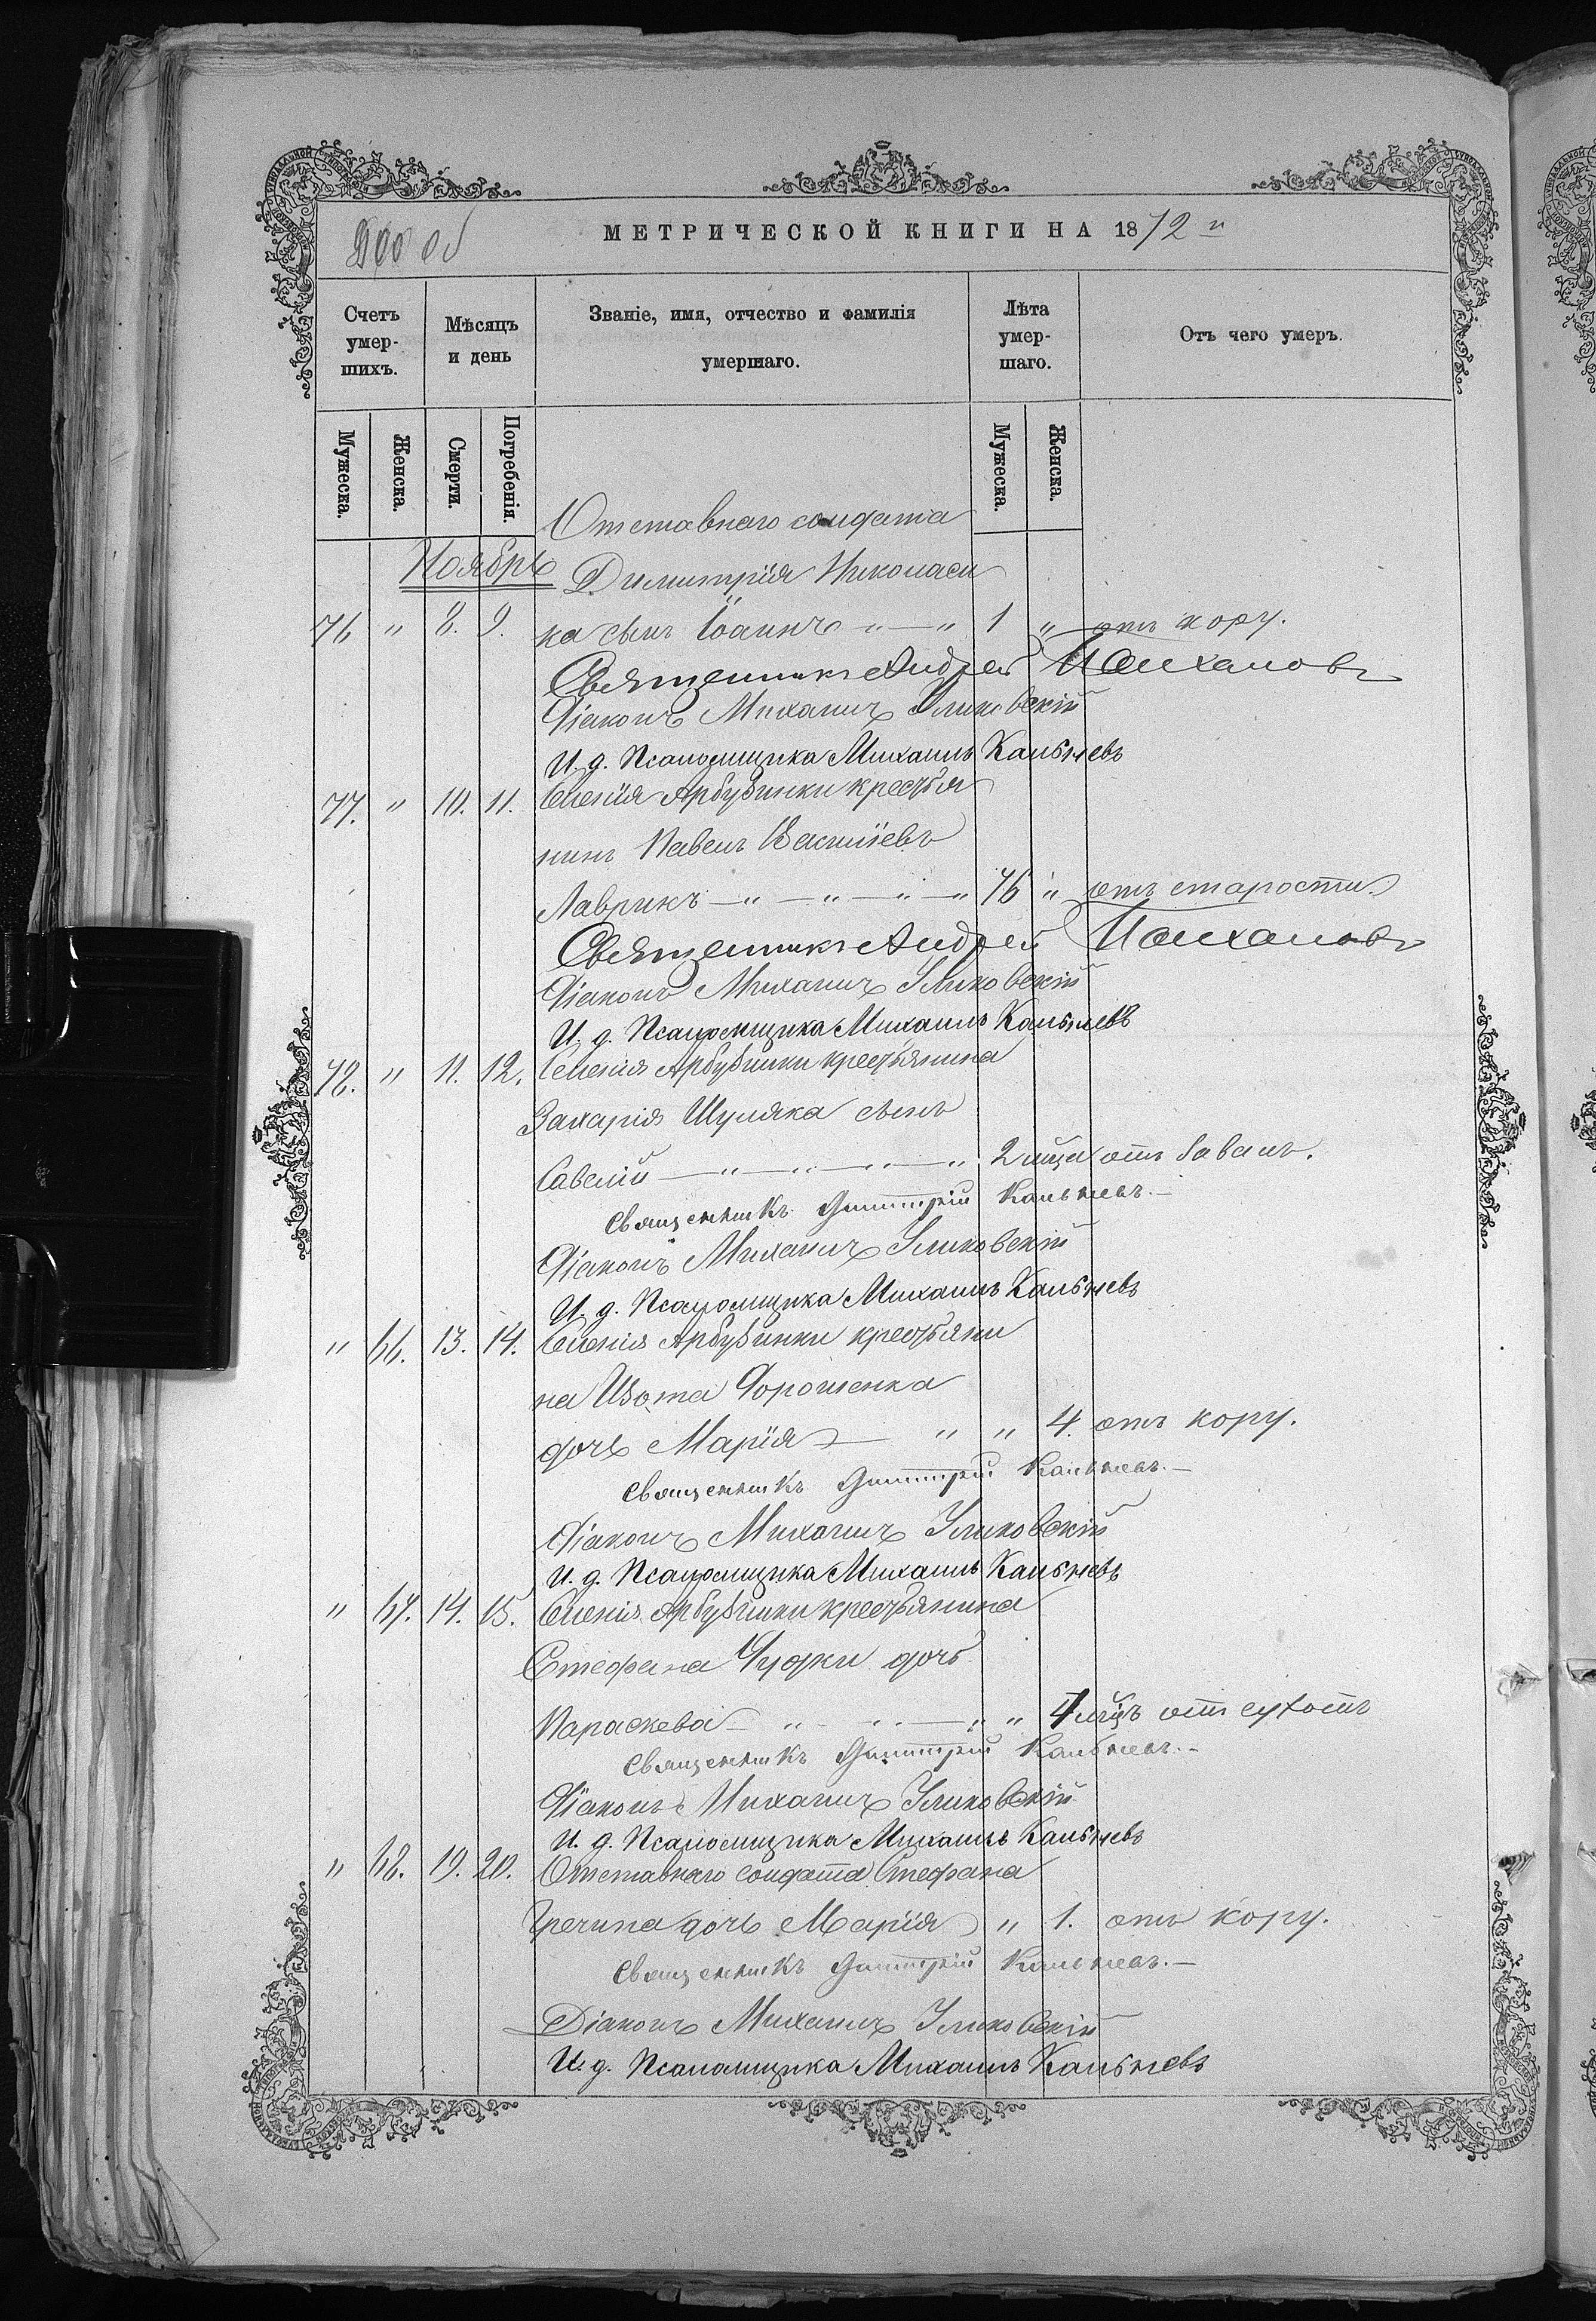 МЕТРИЧЕСКОЙ КНИГИ НА 1872 й
Счетъ умер-шихъ. Мѣсяцъ и день Званіе, имя, отчество и фамилія умершаго. Лѣта умер-шаго. Отъ чего умеръ.
Мужеска. Женска. Смерти. Погребенія. Мужеска. Женска.
Отставнаго солдата
Ноябрь Димитрія Николаен
76 " 8. 9. ка сынъ Іоаннъ " — " 1 " отъ кору.
Священникъ Андрей
Діаконъ Михаилъ
И. д. Псаломщика Михаилъ Кальневъ
77. " 10. 11. Селенія Арбузинки крестья
нинъ Павелъ Василіевъ
Лаврикъ — " — " — " — " 76 " отъ старости
Священникъ Андрей
Діаконъ Михаилъ
И. д. Псаломщика Михаилъ Кальневъ
78. " 11. 12. Селенія Арбузинки крестьянина
Захарія Шуляка сынъ
Савелій — " — " — " — " 2 мца отъ
Священникъ Димитрій Кальневъ. —
Діаконъ Михаилъ
И. д. Псаломщика Михаилъ Кальневъ
" 66. 13. 14. Селенія Арбузинки крестьяни
на Изота Дорошенка
дочь Марія — " " 4. отъ кору.
Священникъ Димитрій Кальневъ. —
Діаконъ Михаилъ
И. д. Псаломщика Михаилъ Кальневъ
" 67. 14. 15. Селенія Арбузинки крестьянина
Стефана Чудки дочь
Параскева — " — " — " " 4 мцъ отъ сухотъ
Священникъ Димитрій Кальневъ. —
Діаконъ Михаилъ
И. д. Псаломщика Михаилъ Кальневъ
" 68. 19. 20. Отставнаго солдата Стефана
Гречина дочь Марія " 1. отъ кору.
Священникъ Димитрій Кальневъ. —
Діаконъ Михаилъ
И. д. Псаломщика Михаилъ Кальневъ